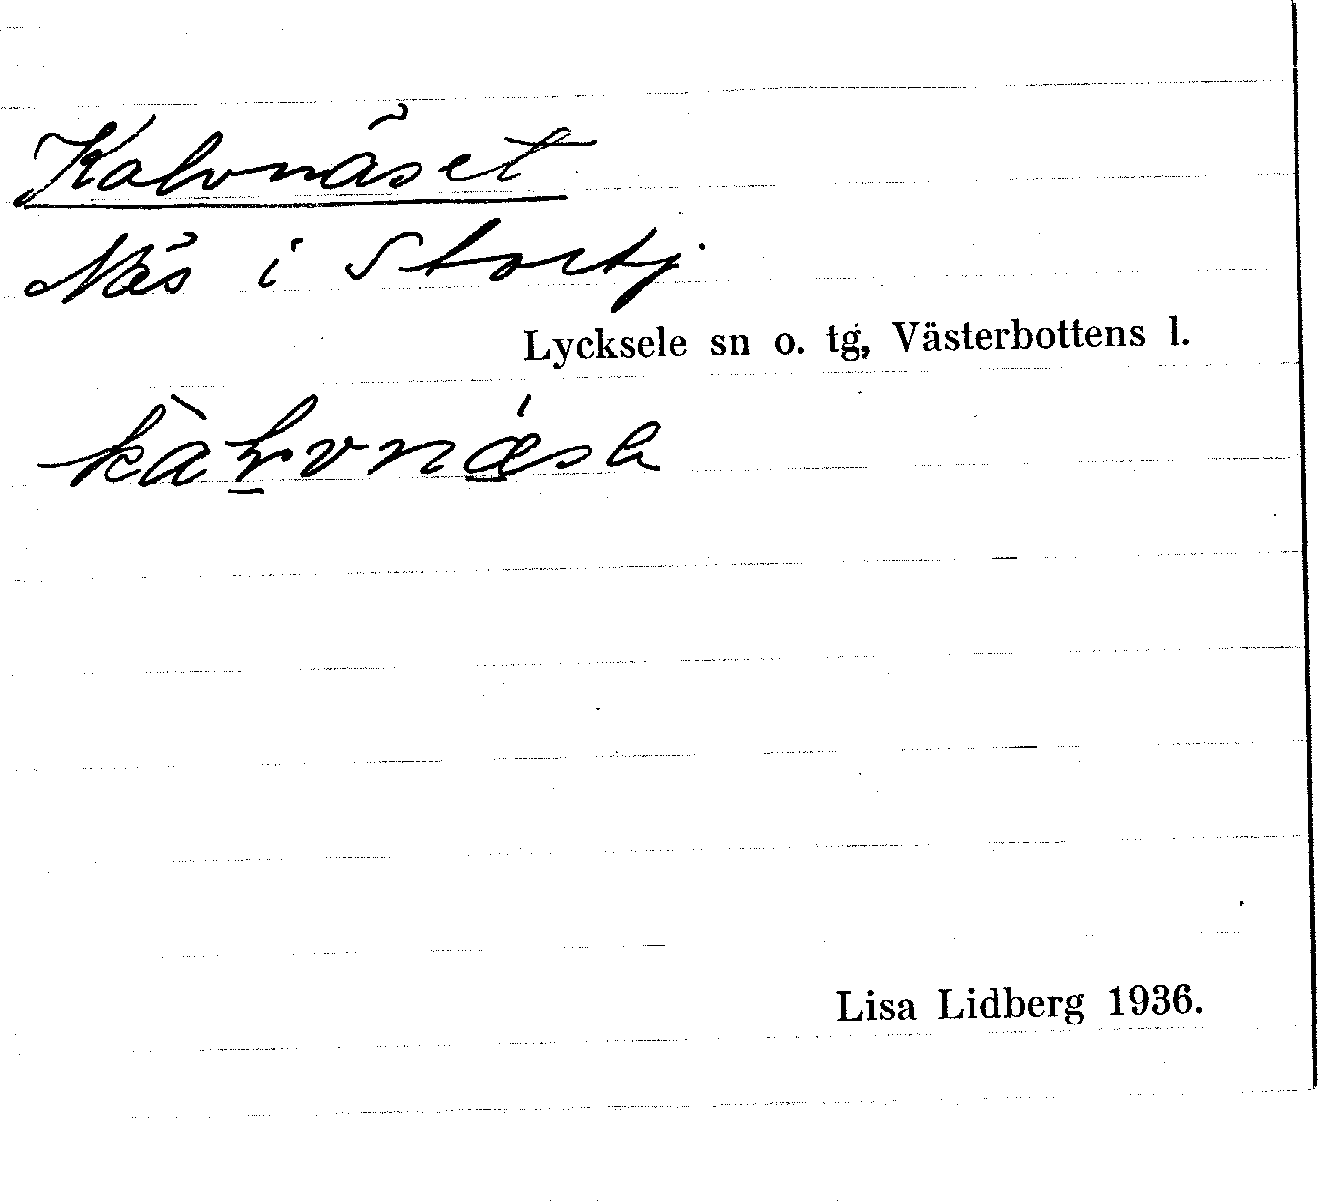 Kalvnäset
Näs i Stortj.
Lycksele sn o. tg, Västerbottens l.
Lisa Lidberg 1936.